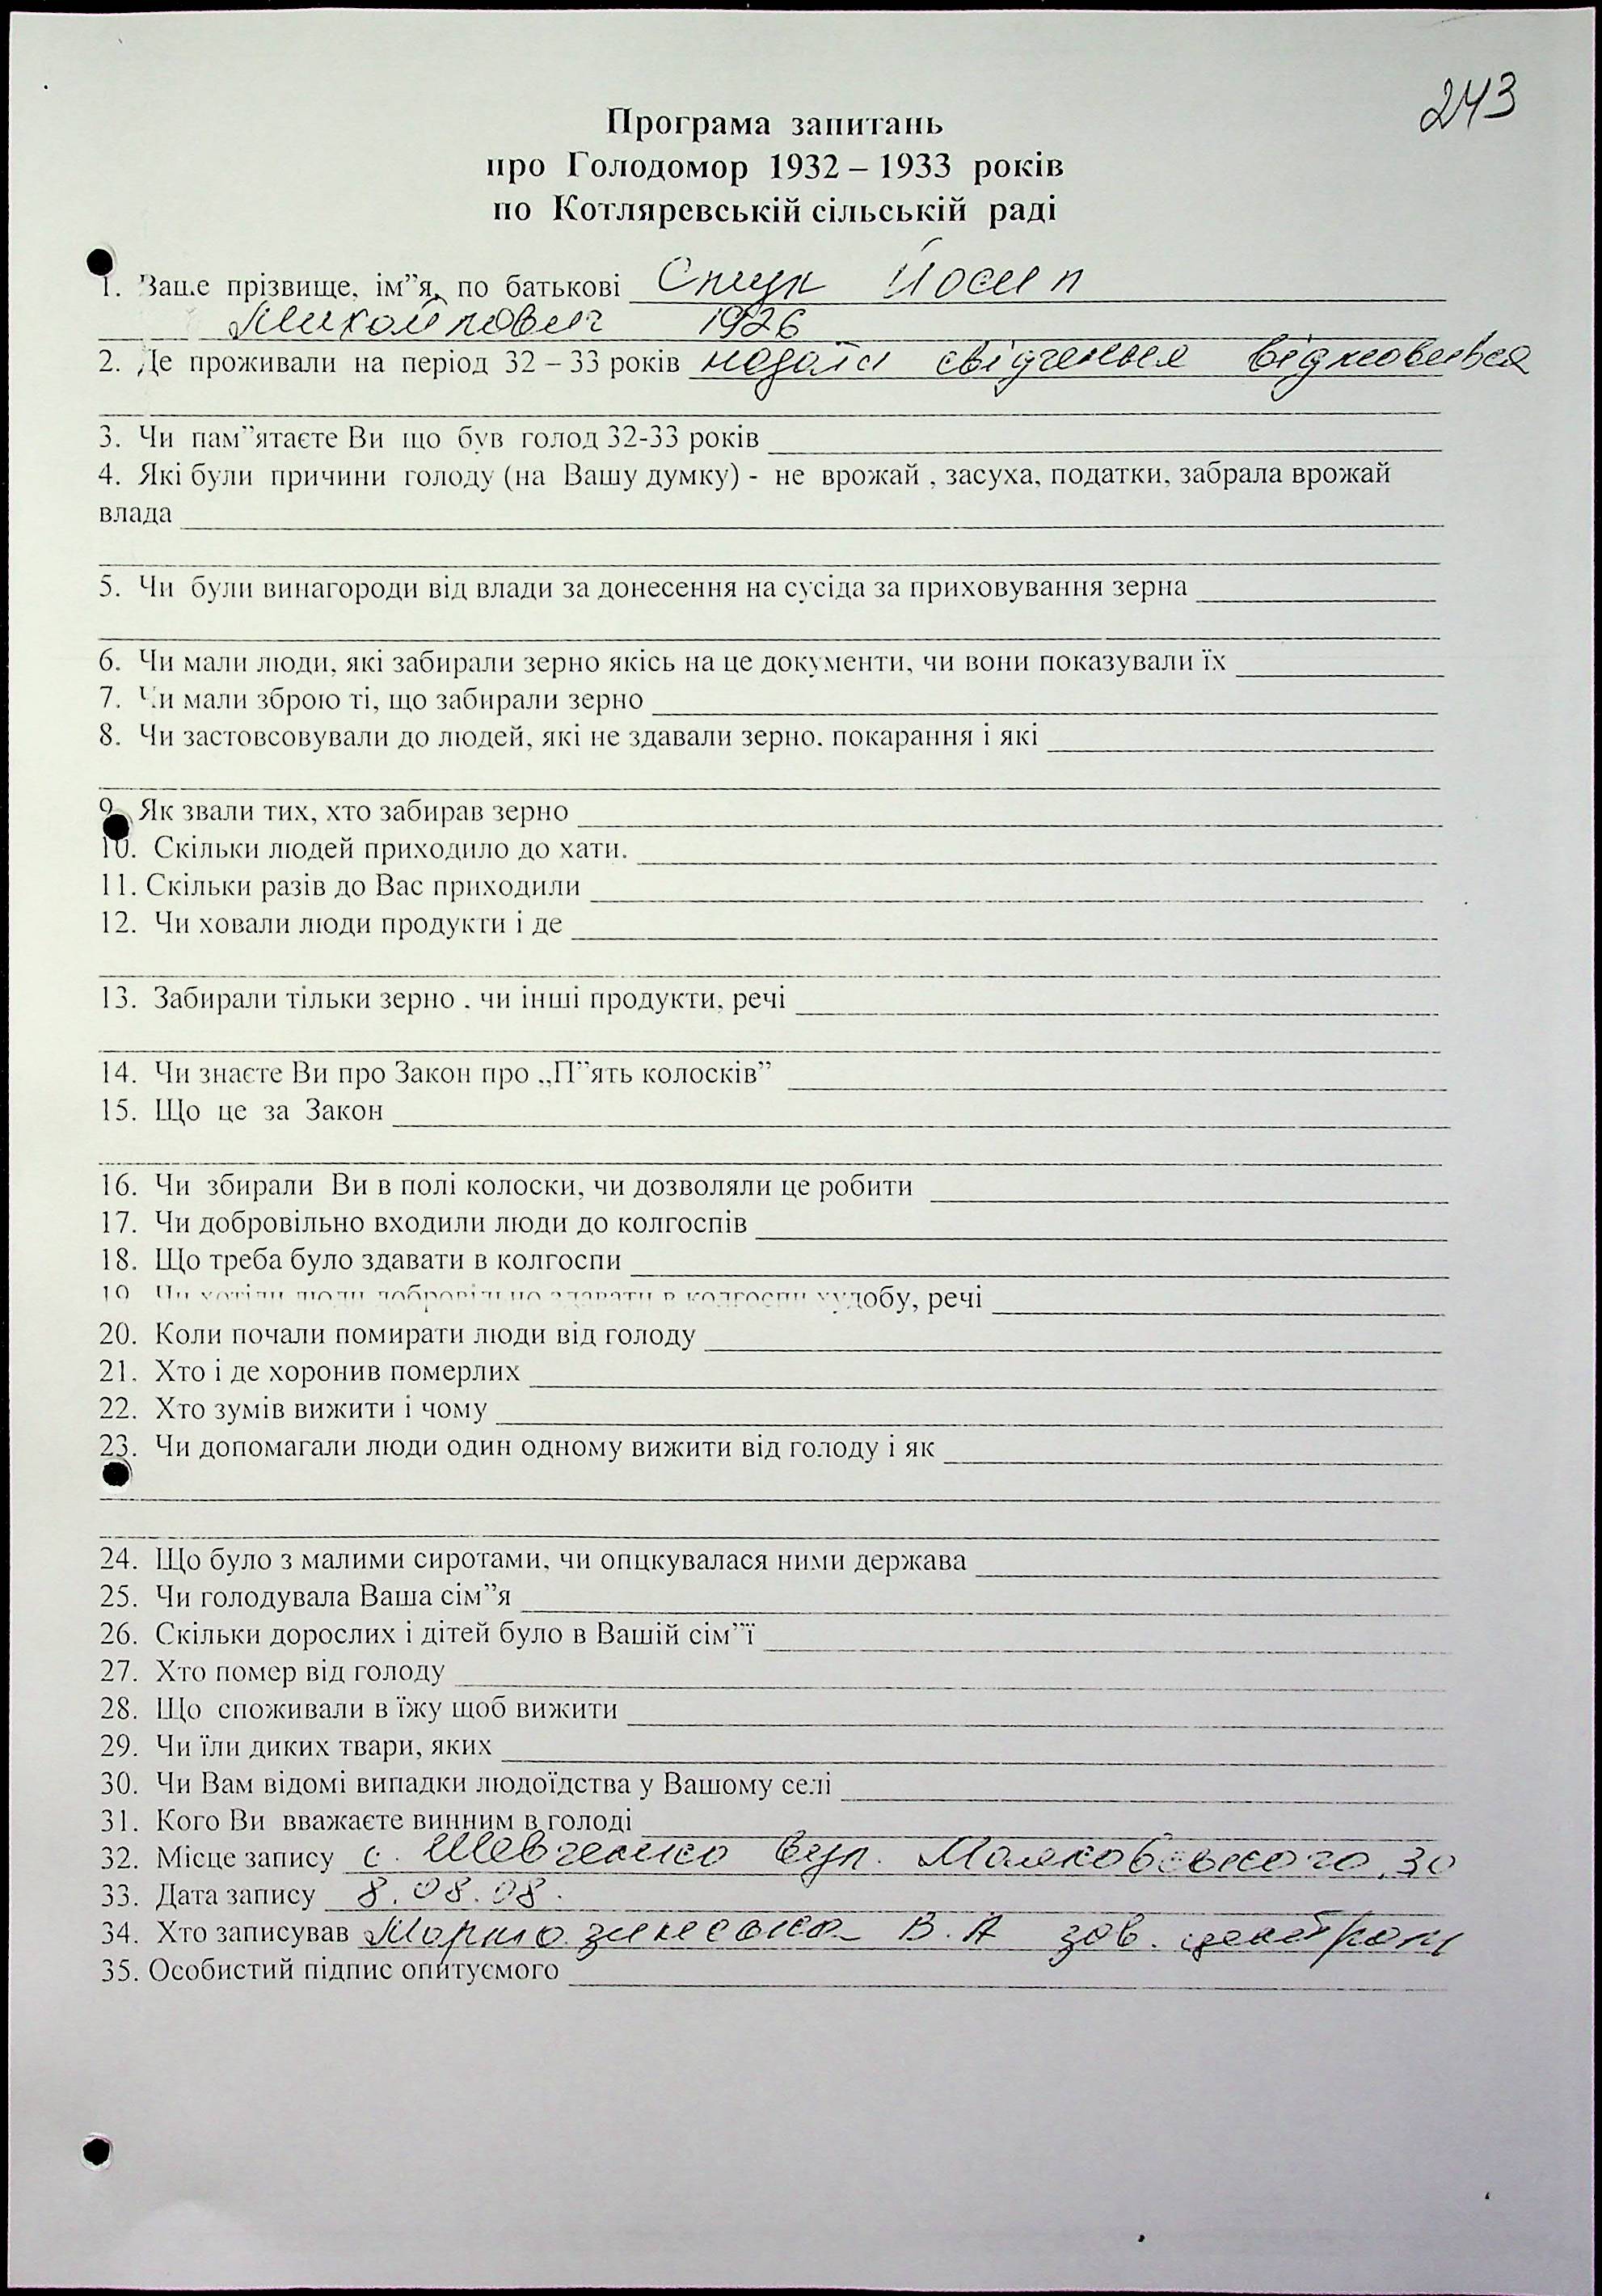 243
Програма запитань
про Голодомор 1932 – 1933 років
по Котляревській сільській раді
1. Ваше прізвище, ім"я, по батькові Спиук Йосип
Михайлович 1926
2. Де проживали на період 32 – 33 років надати свідчення відмовився
3. Чи пам"ятаєте Ви що був голод 32-33 років
4. Які були причини голоду (на Вашу думку) - не врожай , засуха, податки, забрала врожай
влада
5. Чи були винагороди від влади за донесення на сусіда за приховування зерна
6. Чи мали люди, які забирали зерно якісь на це документи, чи вони показували їх
7. Чи мали зброю ті, що забирали зерно
8. Чи застовсовували до людей, які не здавали зерно. покарання і які
9. Як звали тих, хто забирав зерно
10. Скільки людей приходило до хати.
11. Скільки разів до Вас приходили
12. Чи ховали люди продукти і де
13. Забирали тільки зерно , чи інші продукти, речі
14. Чи знаєте Ви про Закон про „П"ять колосків"
15. Що це за Закон
16. Чи збирали Ви в полі колоски, чи дозволяли це робити
17. Чи добровільно входили люди до колгоспів
18. Що треба було здавати в колгоспи
19 Чи хотіли люди добровільно здавати в колгоспи худобу, речі
20. Коли почали помирати люди від голоду
21. Хто і де хоронив померлих
22. Хто зумів вижити і чому
23. Чи допомагали люди один одному вижити від голоду і як
24. Що було з малими сиротами, чи опцкувалася ними держава
25. Чи голодувала Ваша сім"я
26. Скільки дорослих і дітей було в Вашій сім"ї
27. Хто помер від голоду
28. Що споживали в їжу щоб вижити
29. Чи їли диких твари, яких
30. Чи Вам відомі випадки людоїдства у Вашому селі
31. Кого Ви вважаєте винним в голоді
32. Місце запису с. Шевченко вул. Маяковського, 30
33. Дата запису 8.08.08.
34. Хто записував В. А зав.
35. Особистий підпис опитуємого